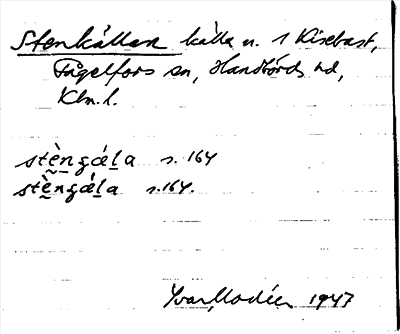 Stenkällan källa n. 1 Kisebast,
Fågelfors sn, Handbörds hd,
Klm. l.
stèngǽla s. 164
stèngǽla s. 164.
Yvar Modéer 1947